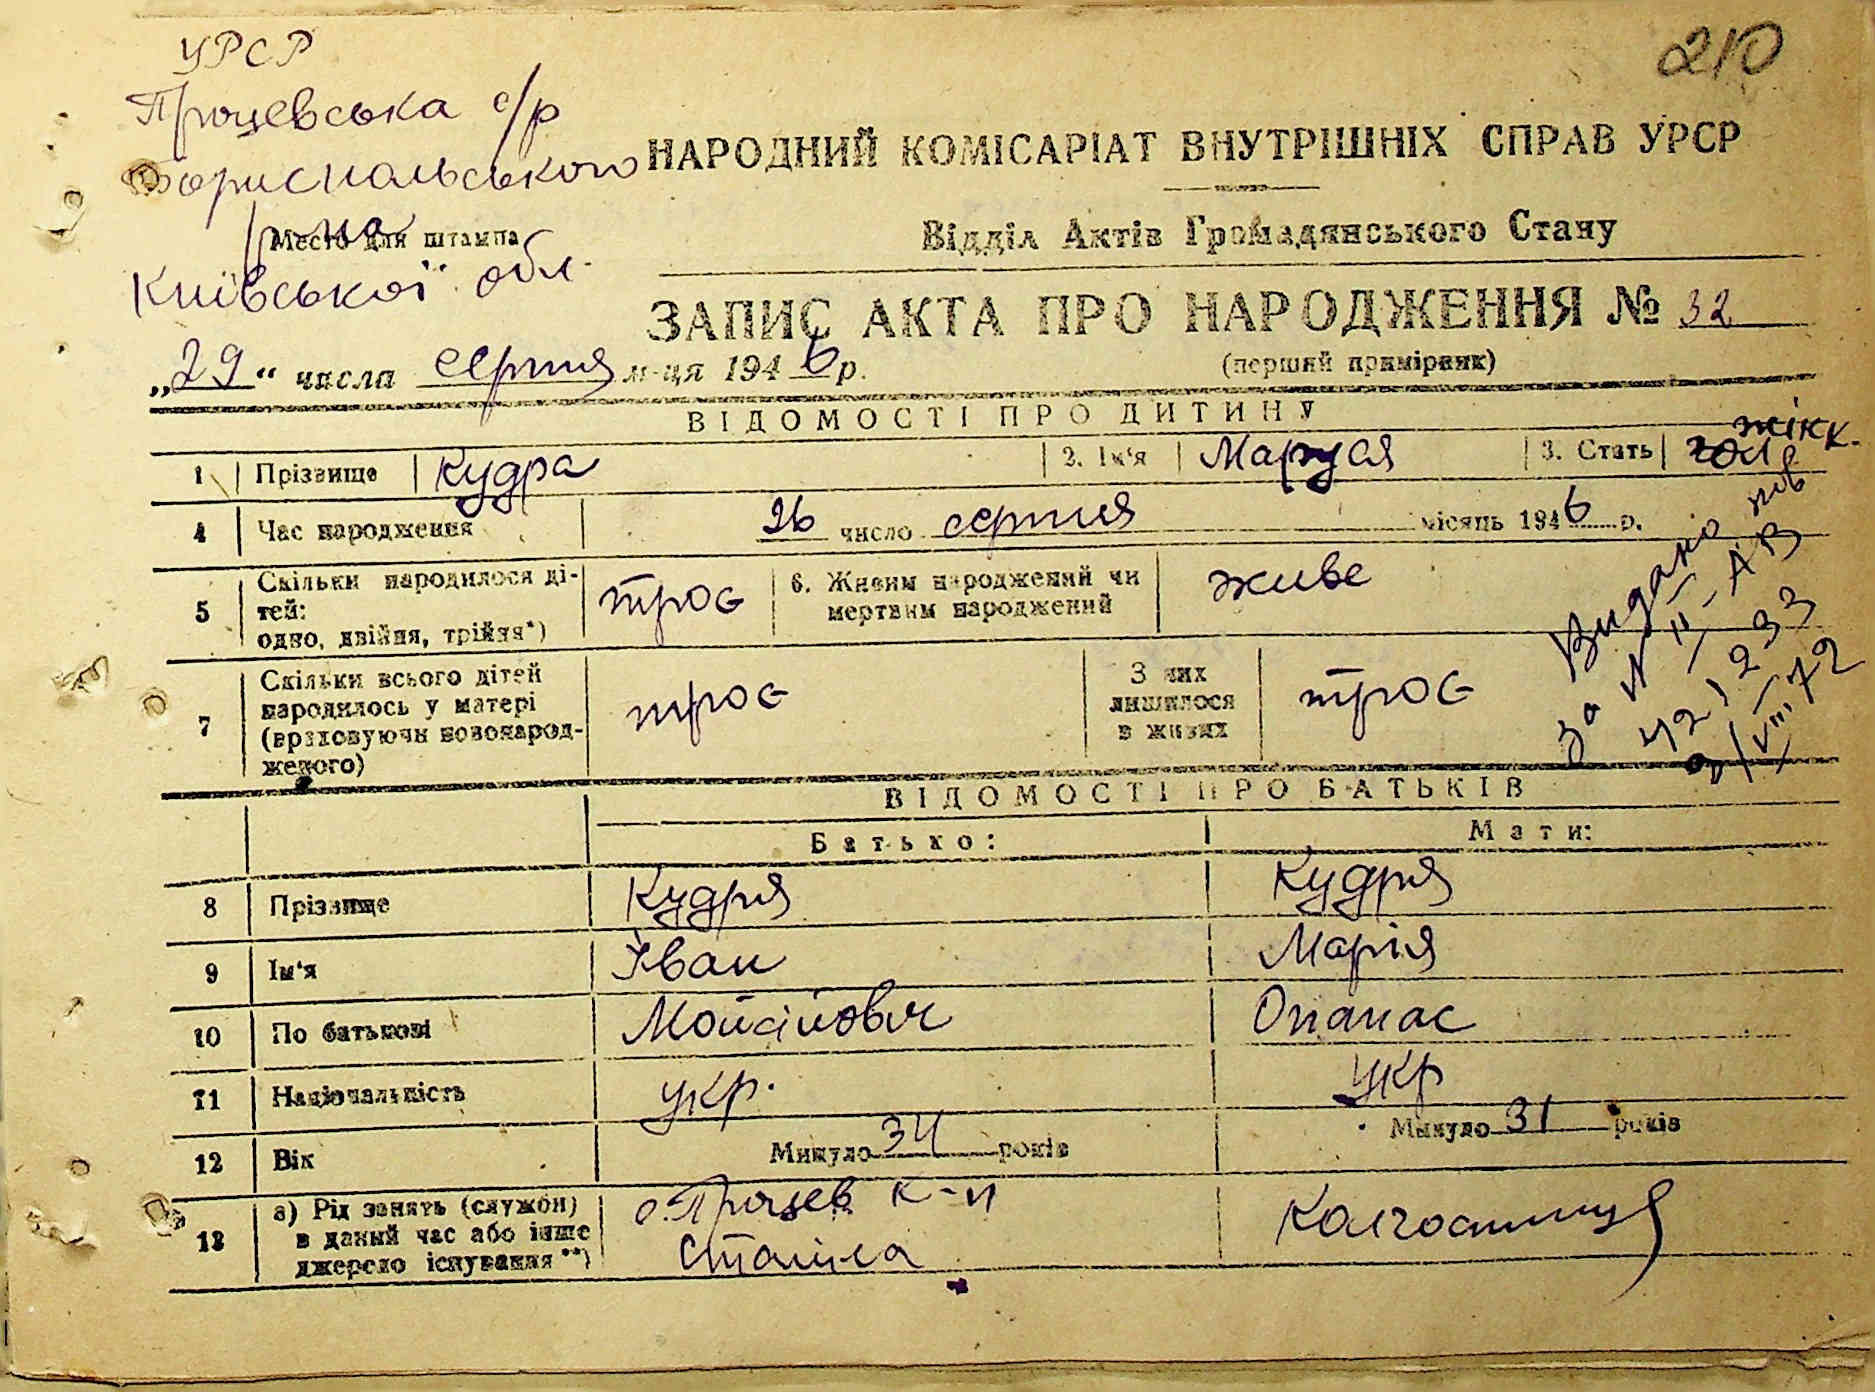 210
УРСР
Процевська с/р
Бориспольського
р-на
Место для штампа
Київської обл.
НАРОДНИЙ КОМІСАРІАТ ВНУТРІШНІХ СПРАВ УРСР
Відділ Актів Громадянського Стану
ЗАПИС АКТА ПРО НАРОДЖЕННЯ № 32
(перший примірник)
„29“ числа серпня м-ця 1946 р.
ВІДОМОСТІ ПРО ДИТИНУ
1 Прізвище Кудра 2. Ім'я Маруся 3. Стать жінк.
4 Час народження 26 число серпня місяць 1946 р.
5 Скільки народилося ді-
тей:
одно, двійня, трійня*) троє 6. Живим народжений чи
мертвим народжений живе
7 Скільки всього дітей
народилось у матері
(враховуючи новонарод-
женого) троє З них
лишилося
в живих троє
Видано пов
за № II-АВ
421233
3/VIII-72
ВІДОМОСТІ ПРО БАТЬКІВ
Батько: Мати:
8 Прізвище Кудря Кудря
9 Ім'я Іван Марія
10 По батькові Мойсійович Опанас
11 Національність укр. укр
12 Вік Минуло 34 років Минуло 31 років
13 а) Рід занять (служби)
в даний час або інше
джерело існування **) с. Процев к-п
Сталіна Колгоспниця